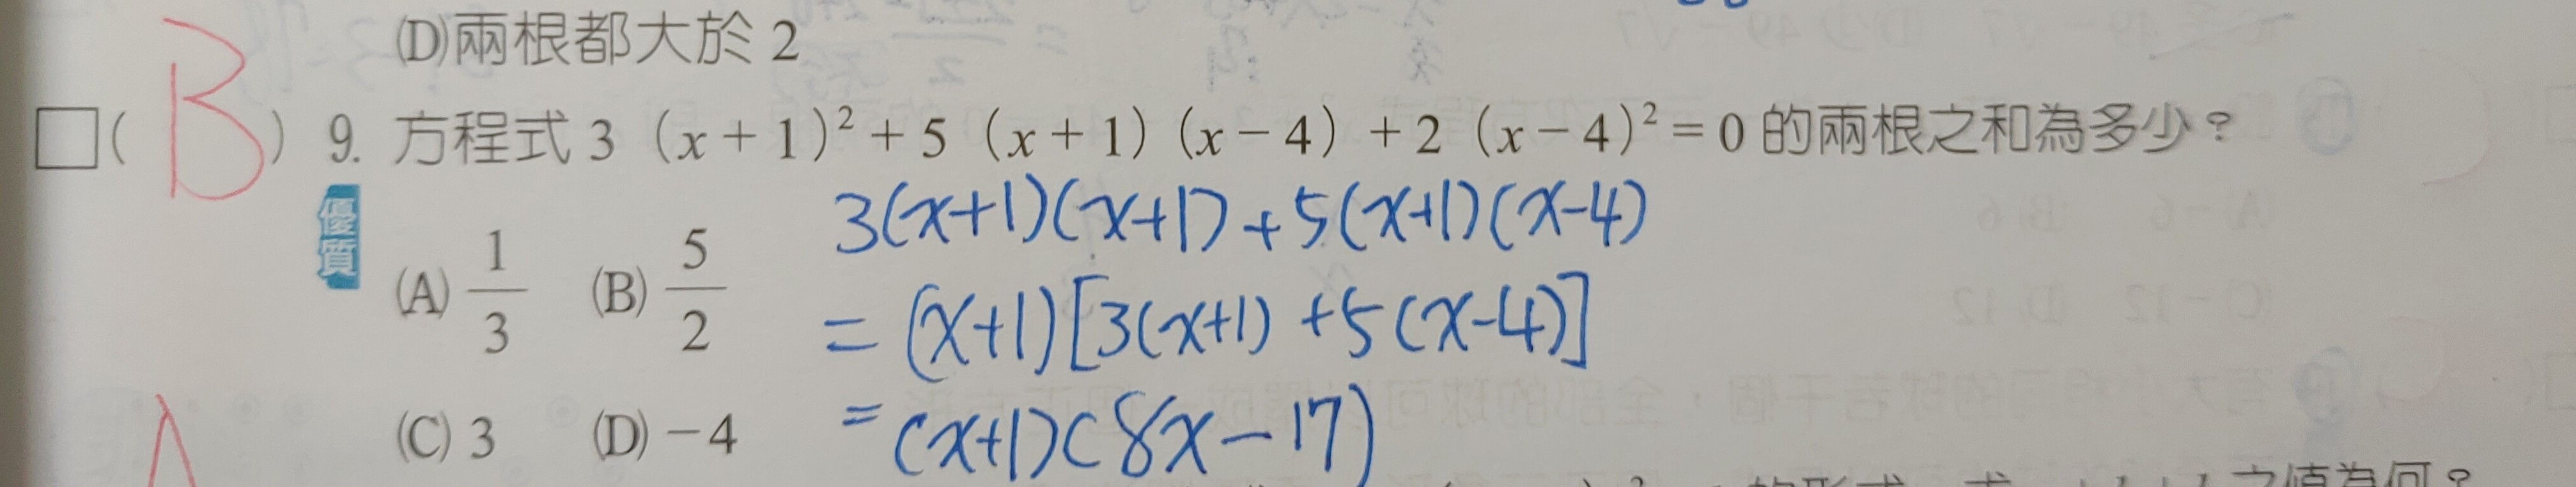 (D)兩根都大於 2
□( B ) 9. 方程式 3（x＋1）²＋5（x＋1）（x－4）＋2（x－4）²＝0 的兩根之和為多少？
優質
3(x+1)(x+1)+5(x+1)(x-4)
(A) 1/3 (B) 5/2
=(x+1)[3(x+1)+5(x-4)]
(C) 3 (D) －4
=(x+1)(8x-17)
之值為何？